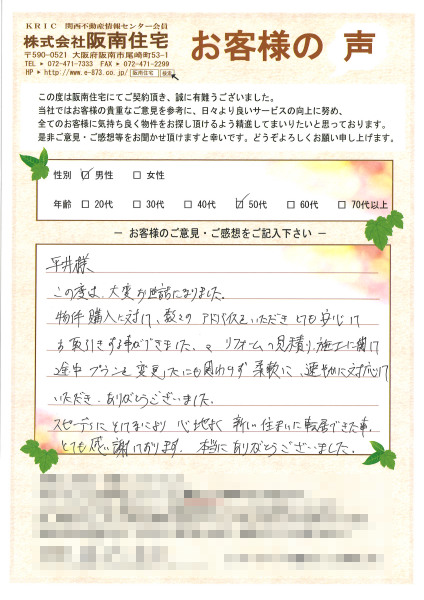 KRIC 関西不動産情報センター会員
株式会社阪南住宅
〒590-0521 大阪府阪南市尾崎町53-1
TEL ▶ 072-471-7333 FAX ▶ 072-471-2299
HP ▶ http://www.e-873.co.jp/ 阪南住宅 検索
お客様の 声
この度は阪南住宅にてご契約頂き、誠に有難うございました。
当社ではお客様の貴重なご意見を参考に、日々より良いサービスの向上に努め、
全てのお客様に気持ち良く物件をお探し頂けるよう精進してまいりたいと思っております。
是非ご意見・ご感想等をお聞かせ頂けますと幸いです。どうぞよろしくお願い申し上げます。
性別 ☑ 男性 □ 女性
年齢 □ 20代 □ 30代 □ 40代 ☑ 50代 □ 60代 □ 70代以上
― お客様のご意見・ご感想をご記入下さい ―
平井様
この度は、大変お世話になりました。
物件購入に対して、数々のアドバイスをいただきとても安心して
お取引きする事ができました。又リフォームの見積り、施工に関して
途中プランを変更したにも関わらず柔軟に、速やかに対応して
いただき、ありがとうございました。
スピーディに、そしてなにより心地よく新しい住まいに転居できた事、
とても感謝しております。本当にありがとうございました。